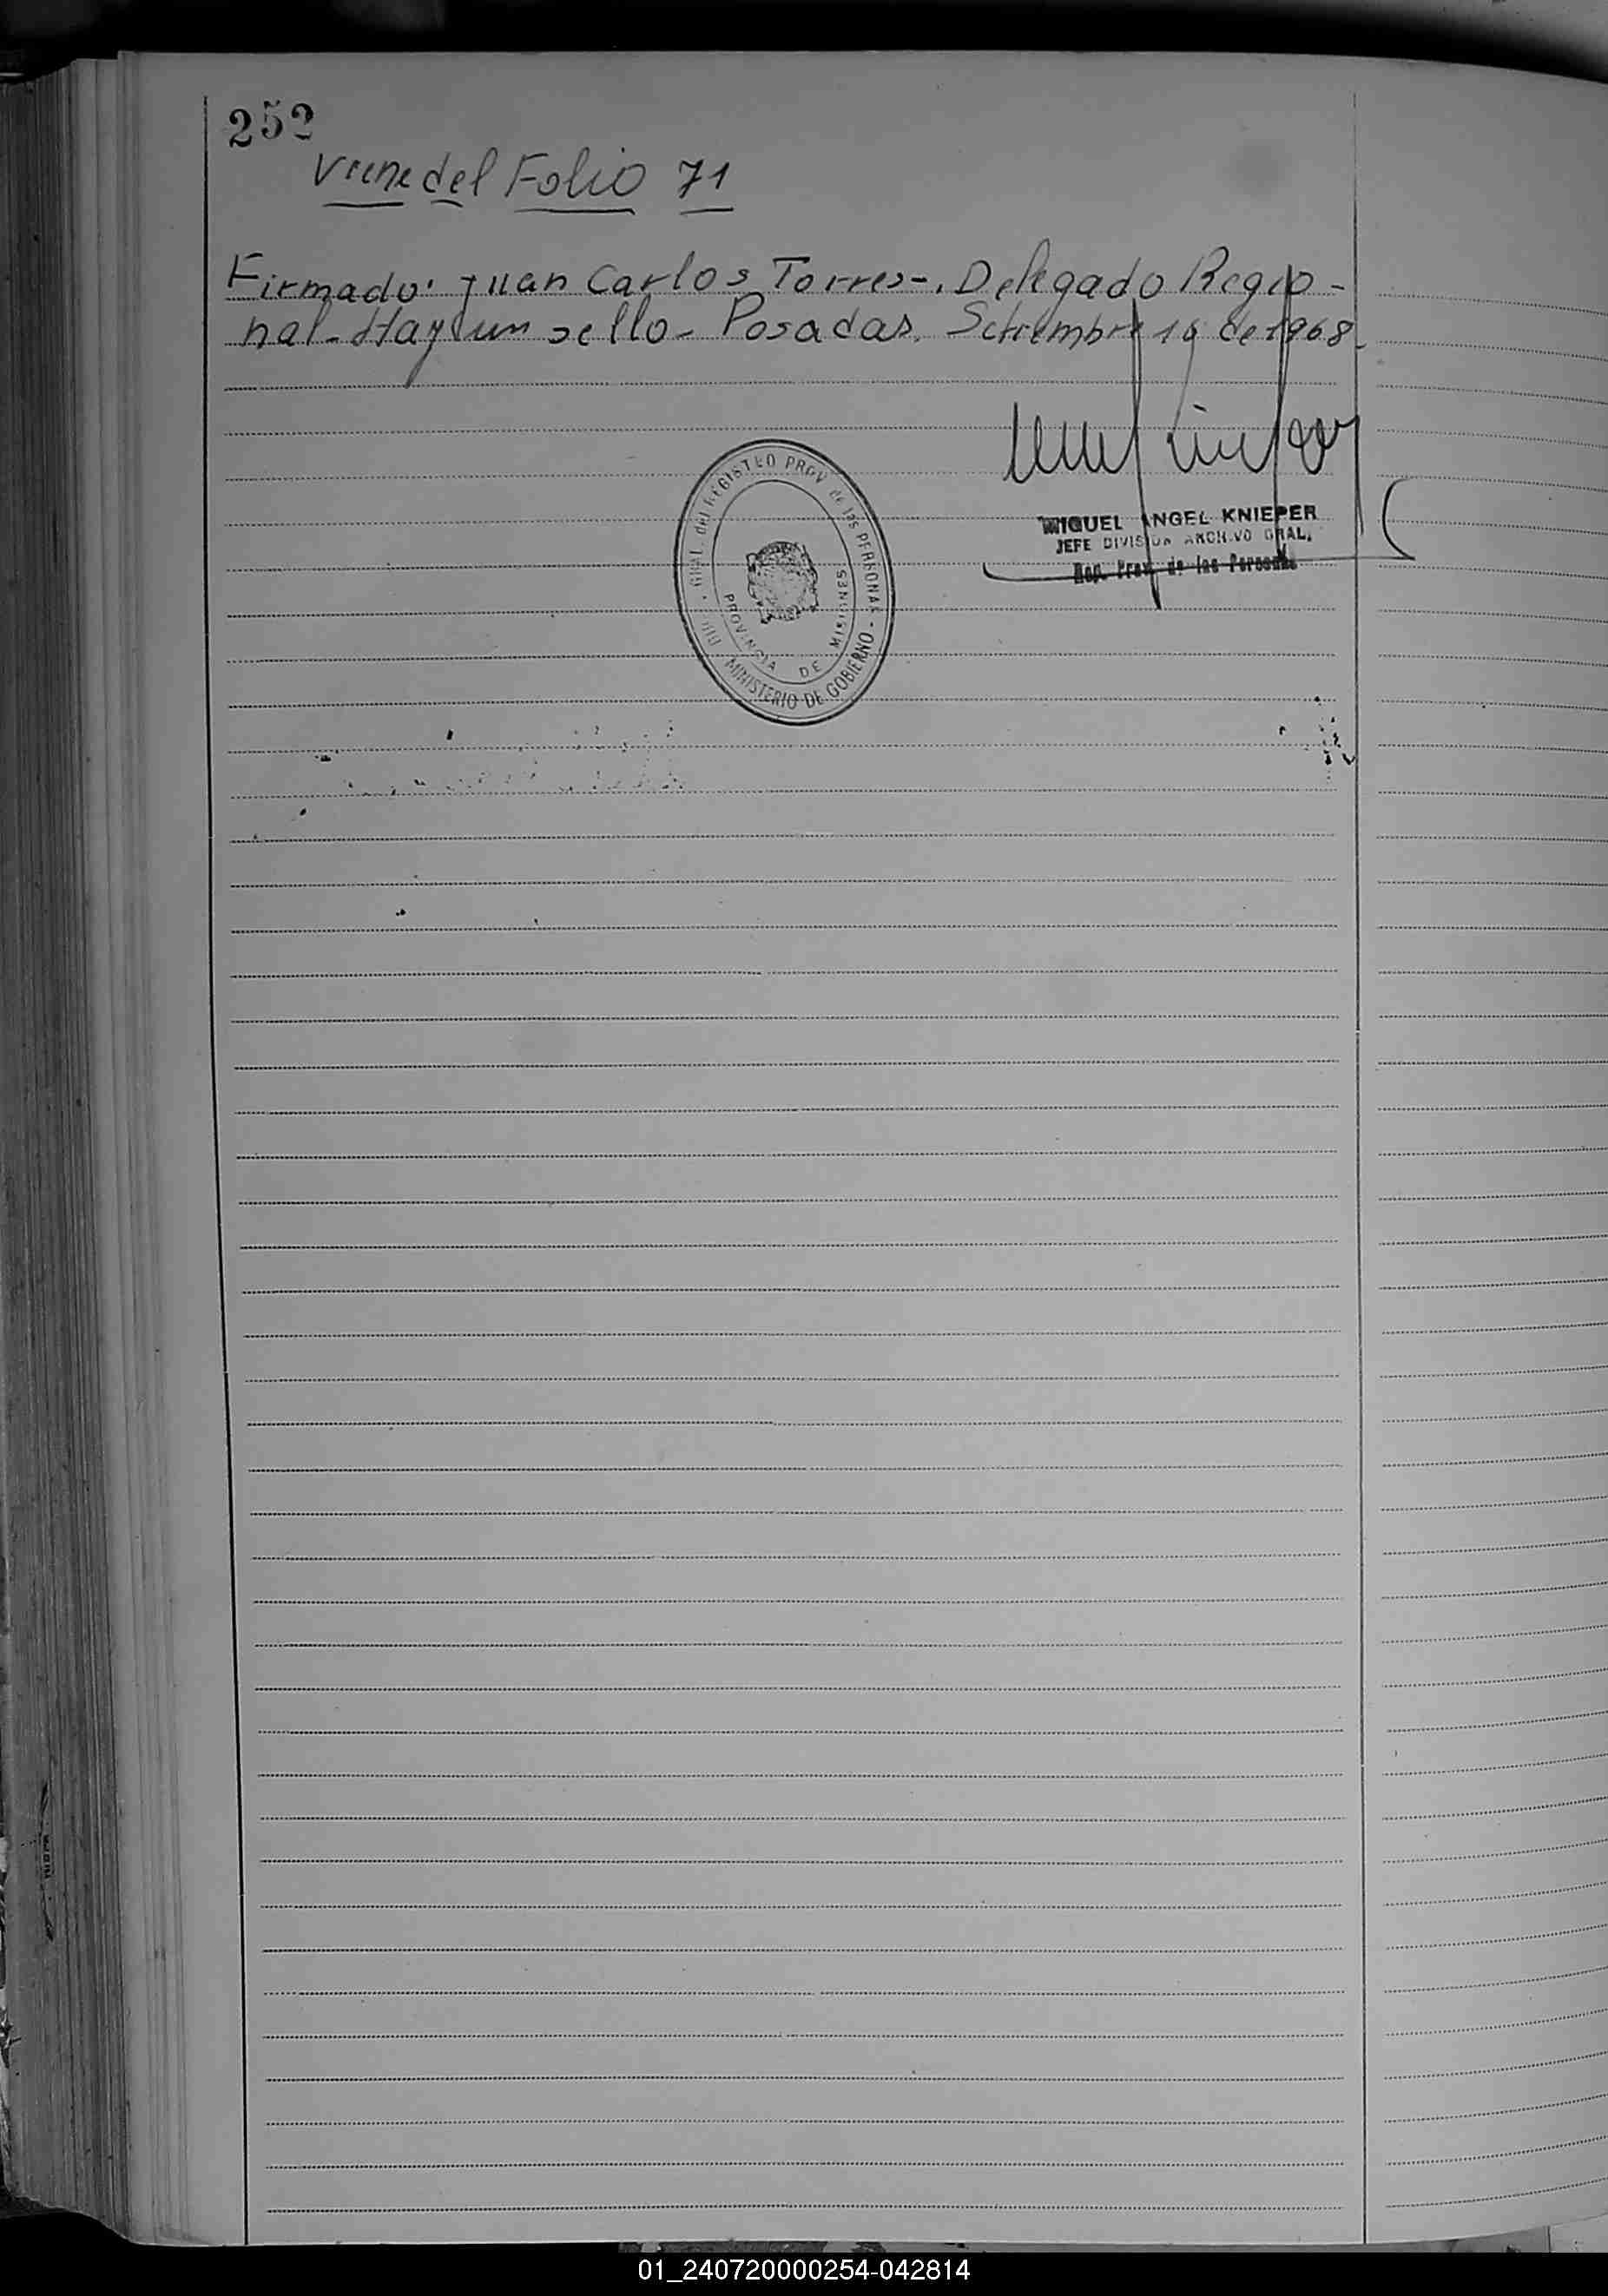 252
Viene del Folio 71
Firmado: Juan Carlos Torres-. Delegado Regio-
nal- Hay un sello- Posadas. Setiembre 19 de 1968-
GRAL. del REGISTRO PROV. de las PERSONAS - MINISTERIO DE GOBIERNO
PROVINCIA DE MISIONES
MIGUEL ANGEL KNIEPER
JEFE DIVISION ARCHIVO GRAL.
Prov. de las Personas
01_240720000254-042814